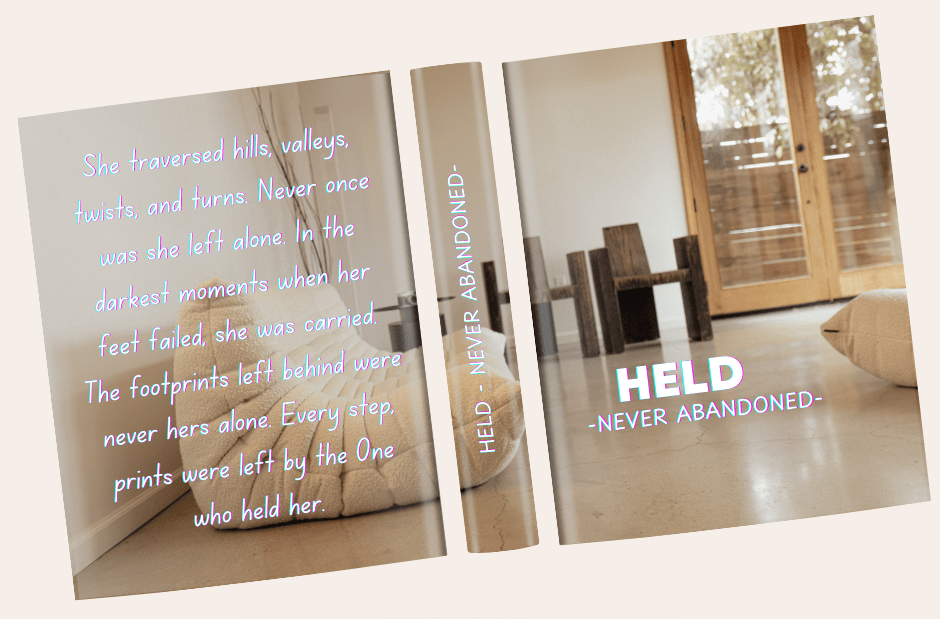 She traversed hills, valleys,
twists, and turns. Never once
was she left alone. In the
darkest moments when her
feet failed, she was carried.
The footprints left behind were
never hers alone. Every step,
prints were left by the One
who held her.
HELD - NEVER ABANDONED-
HELD
-NEVER ABANDONED-